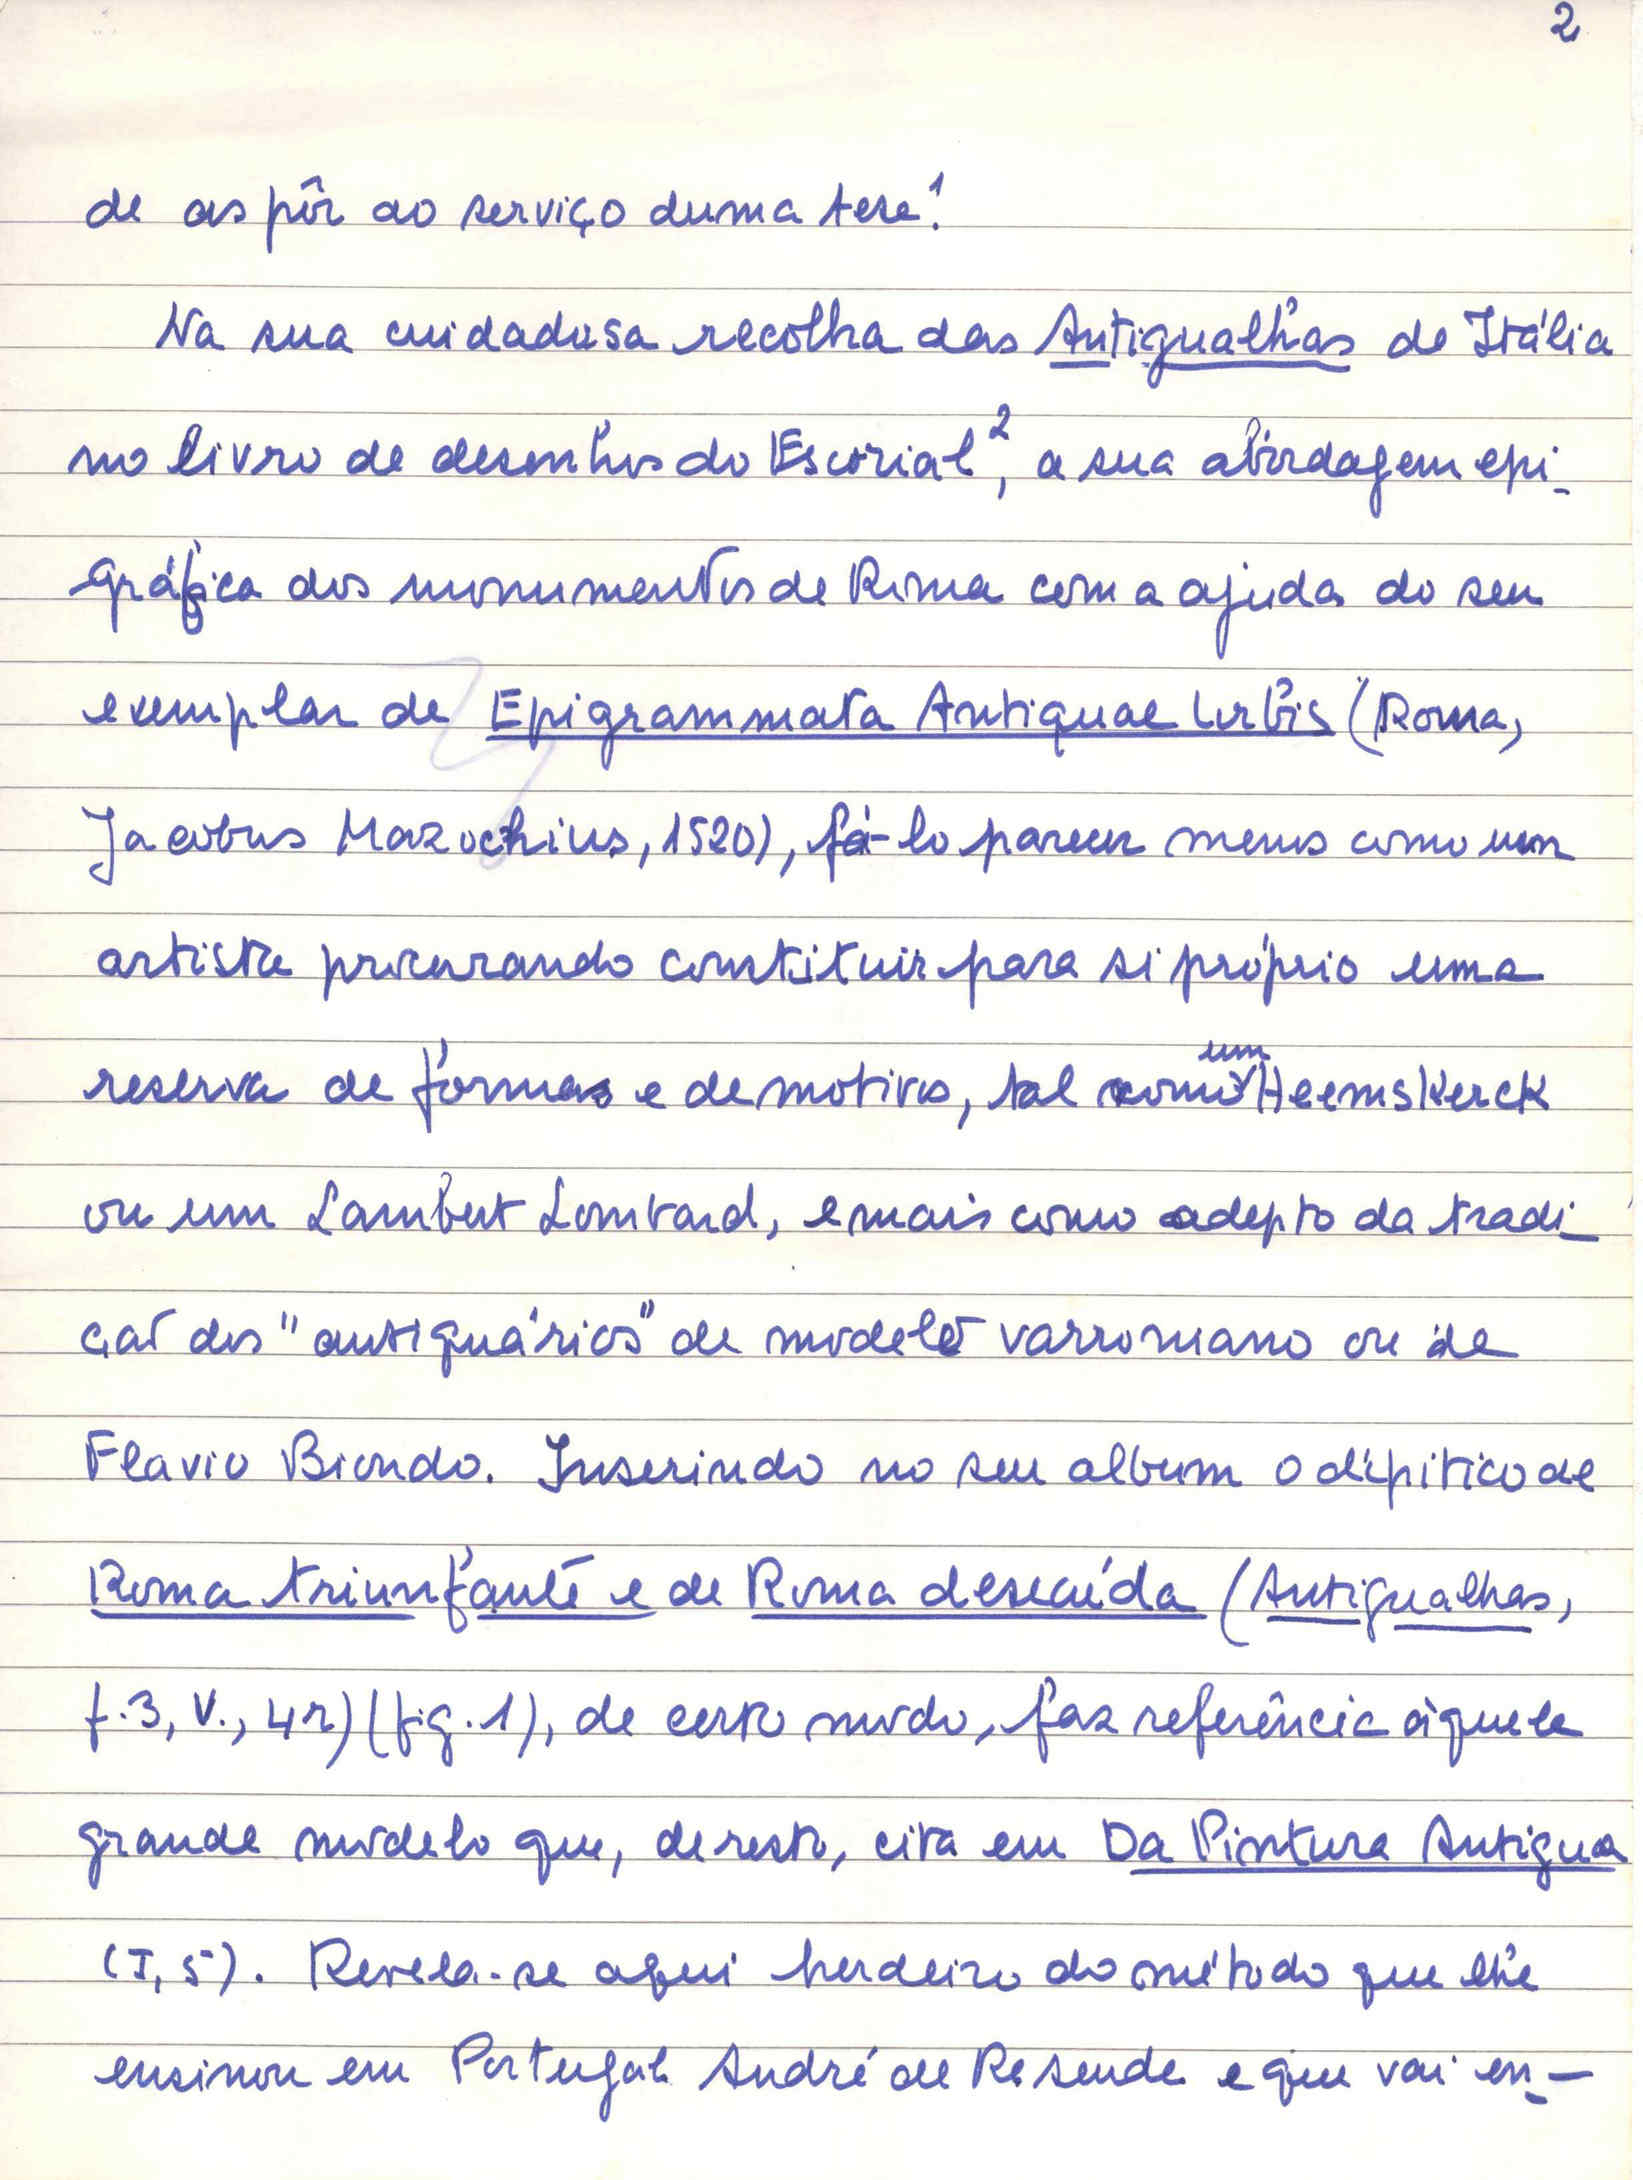 2
de as pôr ao serviço duma tese¹.
Na sua cuidadosa recolha das Antigualhas de Itália
no livro de desenhos do Escorial², a sua abordagem epi-
gráfica dos monumentos de Roma com a ajuda do seu
exemplar de Epigrammata Antiquae Urbis (Roma,
Jacobus Mazochius, 1520), fá-lo parecer menos como um
artista procurando constituir para si próprio uma
reserva de formas e de motivos, tal como um Heemskerck
ou um Lambert Lombard, e mais como adepto da tradi-
ção dos "antiquários" de modelo varroniano ou de
Flavio Biondo. Inserindo no seu album o dípitico de
Roma triunfante e de Roma descaída (Antigualhas,
f.3, V., 4r) (fig. 1), de certo modo, faz referência àquele
grande modelo que, de resto, cita em Da Pintura Antigua
(I, 5). Revela-se aqui herdeiro do método que lhe
ensinou em Portugal André de Resende e que vai en-